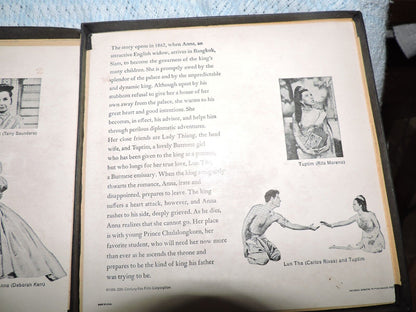 The story opens in 1862, when Anna, an
attractive English widow, arrives in Bangkok,
Siam, to become the governess of the king's
many children. She is promptly awed by the
splendor of the palace and by the unpredictable
and dynamic king. Although upset by his
stubborn refusal to give her a house of her
own away from the palace, she warms to his
great heart and good intentions. She
becomes, in effect, his advisor, and helps him
through perilous diplomatic adventures.
Her close friends are Lady Thiang, the head
wife, and Tuptim, a lovely Burmese girl
who has been given to the king as a present,
but who longs for her true love, Lun Tha,
a Burmese emissary. When the king
thwarts the romance, Anna, irate and
disappointed, prepares to leave. The king
suffers a heart attack, however, and Anna
rushes to his side, deeply grieved. As he dies,
Anna realizes that she cannot go. Her place
is with young Prince Chulalongkorn, her
favorite student, who will need her now more
than ever as he ascends the throne and
prepares to be the kind of king his father
was trying to be.
Tuptim (Rita Moreno)
Lun Tha (Carlos Rivas) and Tuptim
(Terry Saunders)
Anna (Deborah Kerr)
20th Century-Fox Film Corporation